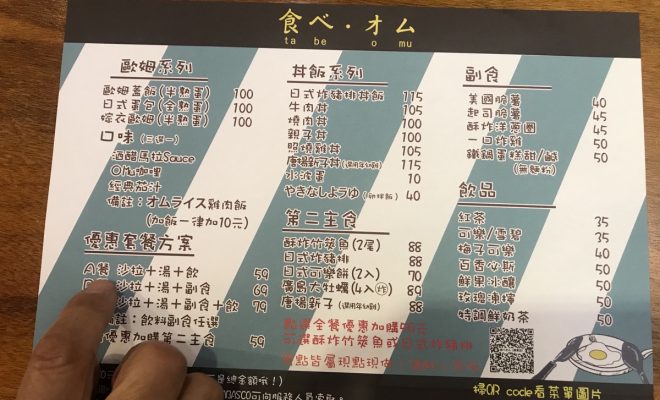 食べ・オム
ta be o mu
歐姆系列
歐姆蓋飯(半熟蛋) 100
日式蛋包(全熟蛋) 100
嫁衣歐姆(半熟蛋) 100
口味(三選一)
酒醋馬拉Sauce
OMu咖哩
經典茄汁
備註：オムライス雞肉飯
(加飯一律加10元)
優惠套餐方案
A餐 沙拉+湯+飲 59
沙拉+湯+副食 69
沙拉+湯+副食+飲 79
：飲料副食任選
優惠加購第二主食 59
丼飯系列
日式炸豬排丼飯 115
牛肉丼 105
燒肉丼 105
親子丼 100
照燒雞丼 105
唐揚新子丼 115
水波蛋 10
やきなしょうゆ 40
第二主食
酥炸竹筴魚(2尾) 88
日式炸豬排 88
日式可樂餅(2入) 70
廣島大牡蠣(4入炸) 89
唐揚新子 88
點選全餐優惠加購
可選酥炸竹筴魚或日式炸豬排
副食
美國脆薯 40
起司脆薯 45
酥炸洋蔥圈 45
一口炸雞 50
鐵鍋蛋糕甜/鹹 50
(無麵粉)
飲品
紅茶 35
可樂/雪碧 35
梅子可樂 40
百香必斯 50
鮮果冰釀 50
玫瑰凍檸 50
特調鮮奶茶 50
掃QR code看菜單圖片